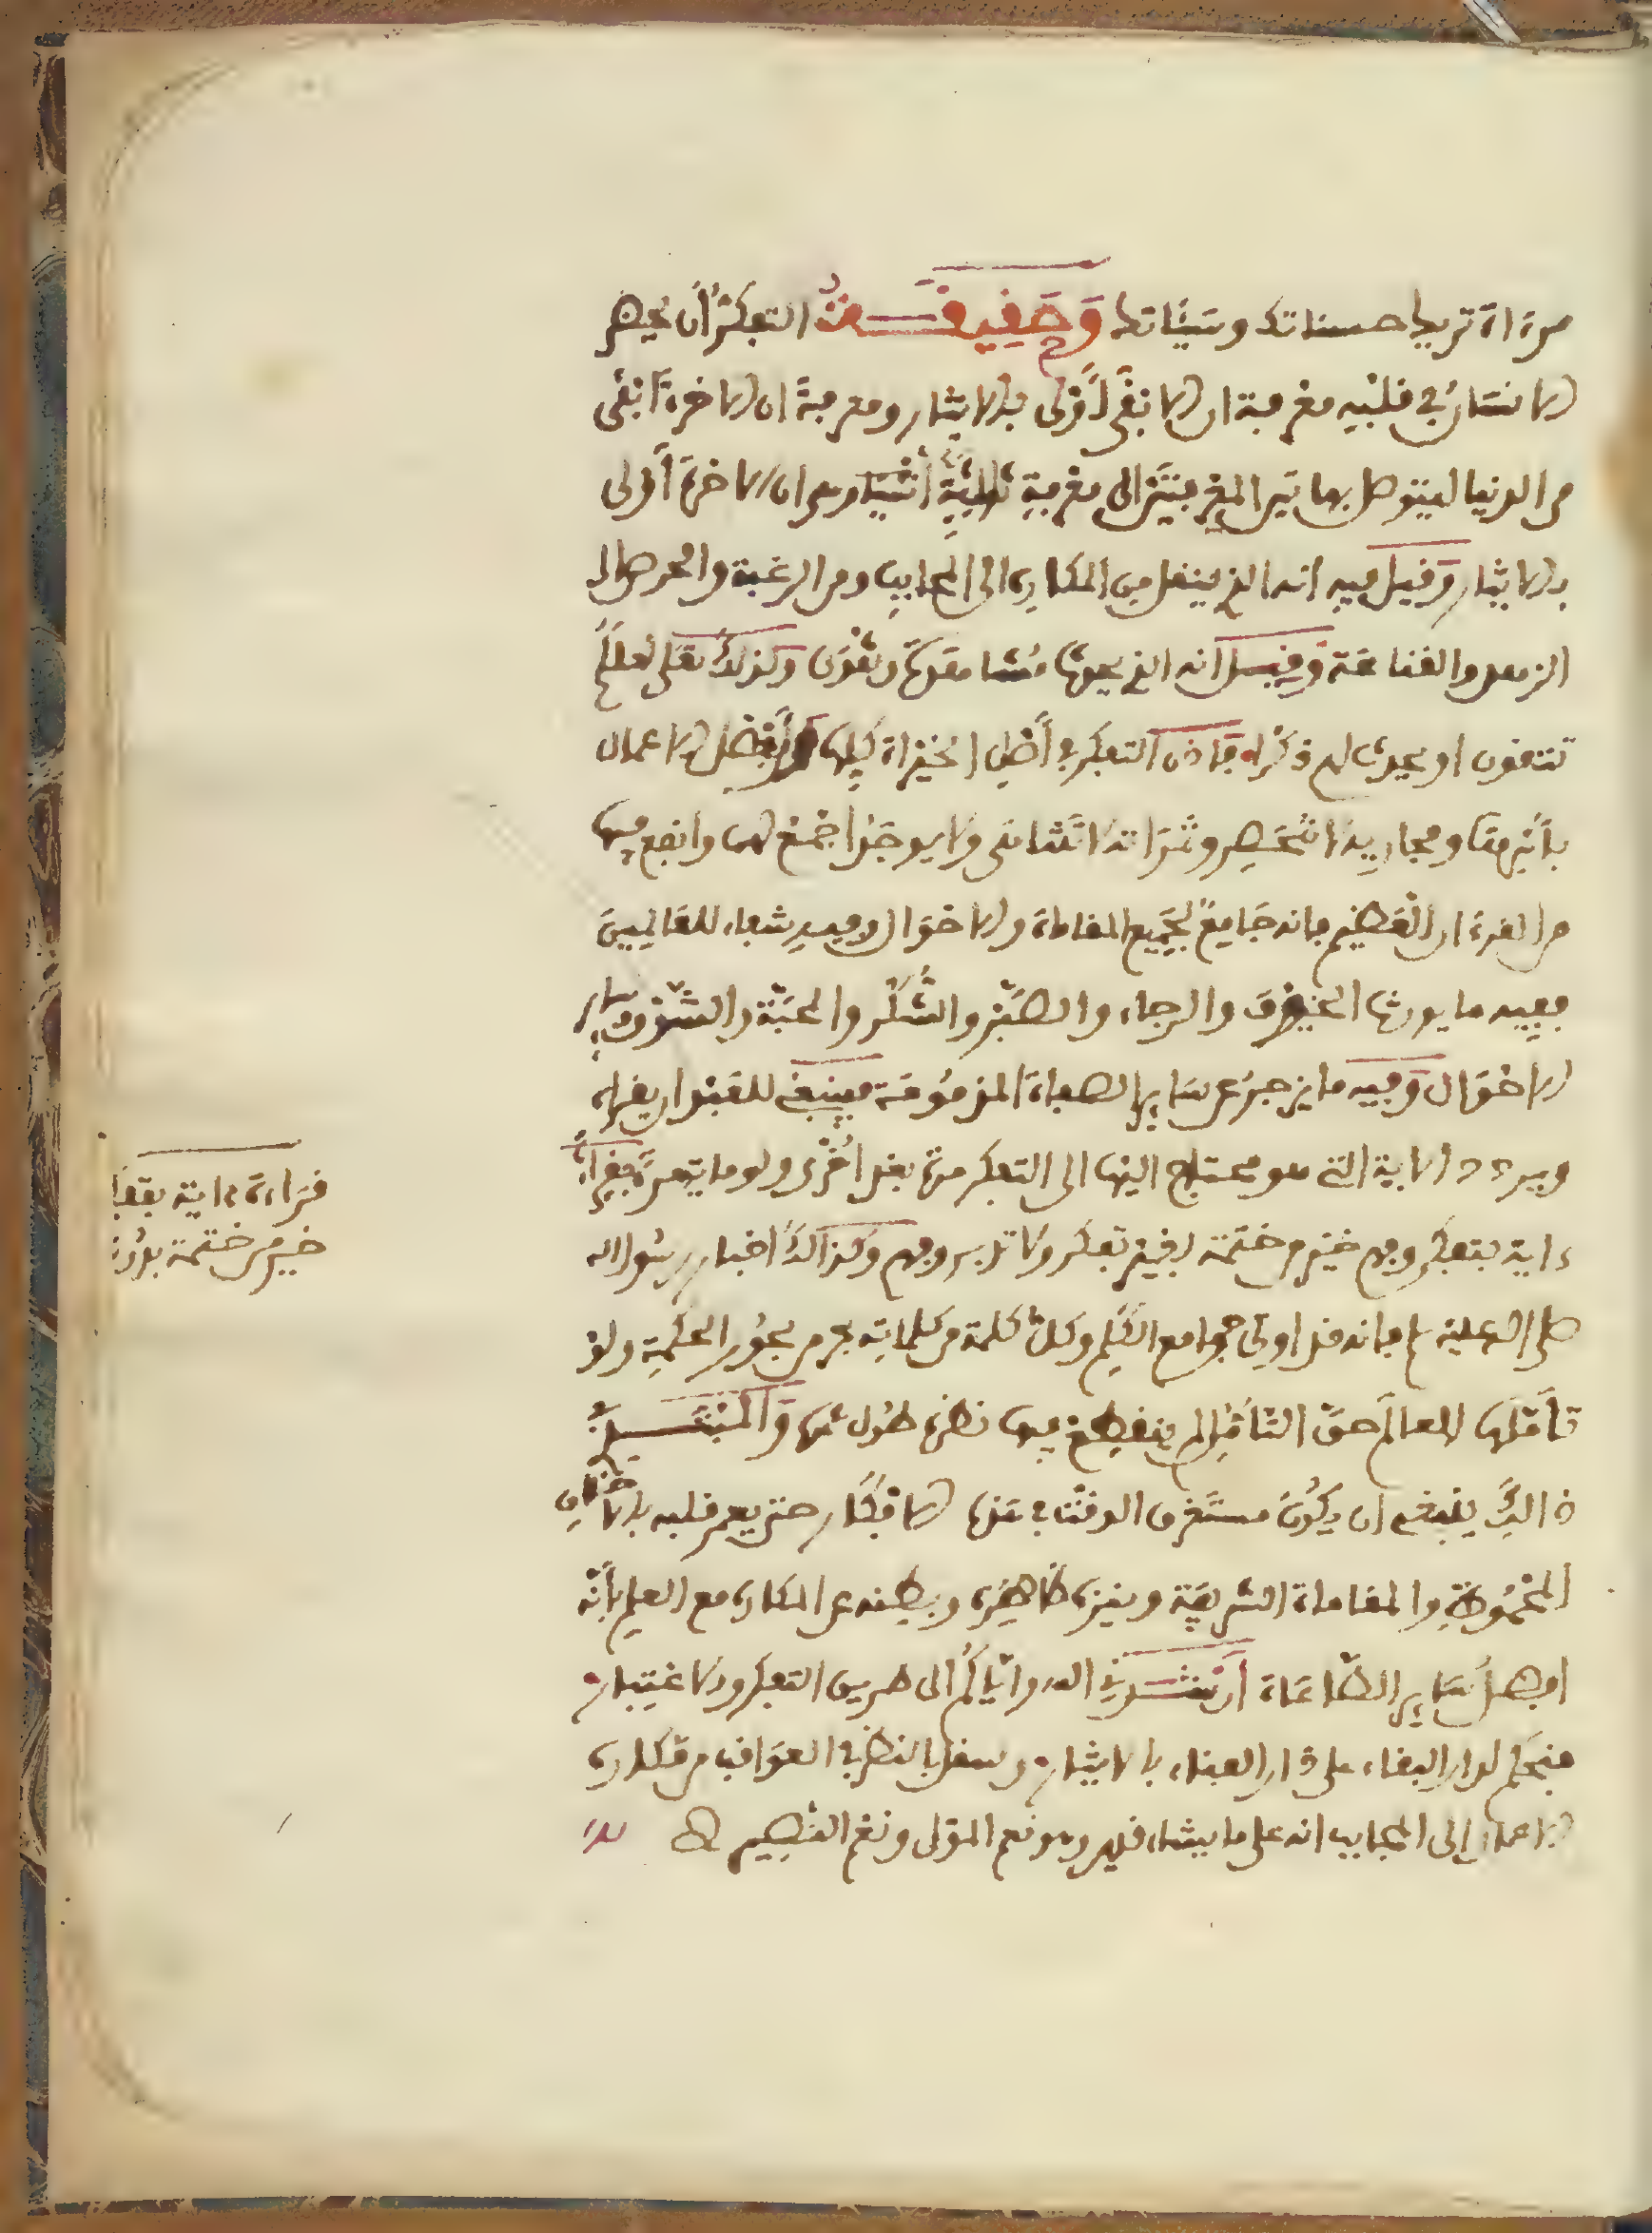 مرءاة تريك حسناتك وسيئاتك وحقيقــة التفكر أن يحضر
الانسان في قلبه معرفة ان الابقى أولى بالايثار ومعرفة ان الاخرة أبقى
من الدنيا ليتوصل بهاتين المعرفتين الى معرفة ثالثة وهي ان الاخرة أولى
بالايثار وقيل فيه انه الذي ينقل من المكاره الى المحاب ومن الرغبة والحرص الى
الزهد والقناعة وقيــل انه الذي يحدث مشاهدة وتقوى وكذلك لعلهم
يتقون او يحدث لهم ذكرا فاذن التفكر في أصل الخيرات كلها وأفضل الاعمال
بأسرها ومجاريه لا تنحصر وثمراته لا تتناهى ولا يوجد أجمع لها وانفع فيها
من القرءان العظيم فانه جامع لجميع المقامات والاحوال وفيه شفاء للعالمين
ففيه ما يورث الخوف والرجاء والصبر والشكر والمحبة والشوق وساير
الاحوال وفيه ما يزجر عن ساير الصفات المذمومة فينبغي للعبد ان يقراه
ويردد الاية التي هو محتاج اليها الى التفكر مرة بعد أخرى ولو ماية مرة فقراءة
ءاية بتفكر وفهم خير من ختمة بغير تفكر ولا تدبر وفهم وكذالك اخبار رسول الله
صلى الله عليه وسلم فانه قد اوتي جوامع الكلم وكل كلمة من كلماته بحر من بحور الحكمة ولو
تأملها العالم حق التأمل لم ينقطع فيها نظره طول عمره والمبتــدي
ذالك ينبغي ان يكون مستغرق الوقت في هذه الافكار حتى يعمر قلبه بالاخلاق
المحمودة والمقامات الشريفة وينزه ظاهره وبطنه عن المكاره مع العلم بأنه
افضل ساير الطاعات أرشــدني الله واياكم الى طريق التفكر والاعتبار
فنحكم لدار البقاء على دار الفناء بالايثار وننتقل بالنظر في العواقب من مكاره
الاعمال إلى المحاب انه على ما يشاء قدير وهو نعم المولى ونعم النصير
قراءة ءاية بتفكر
خير من ختمة بدون